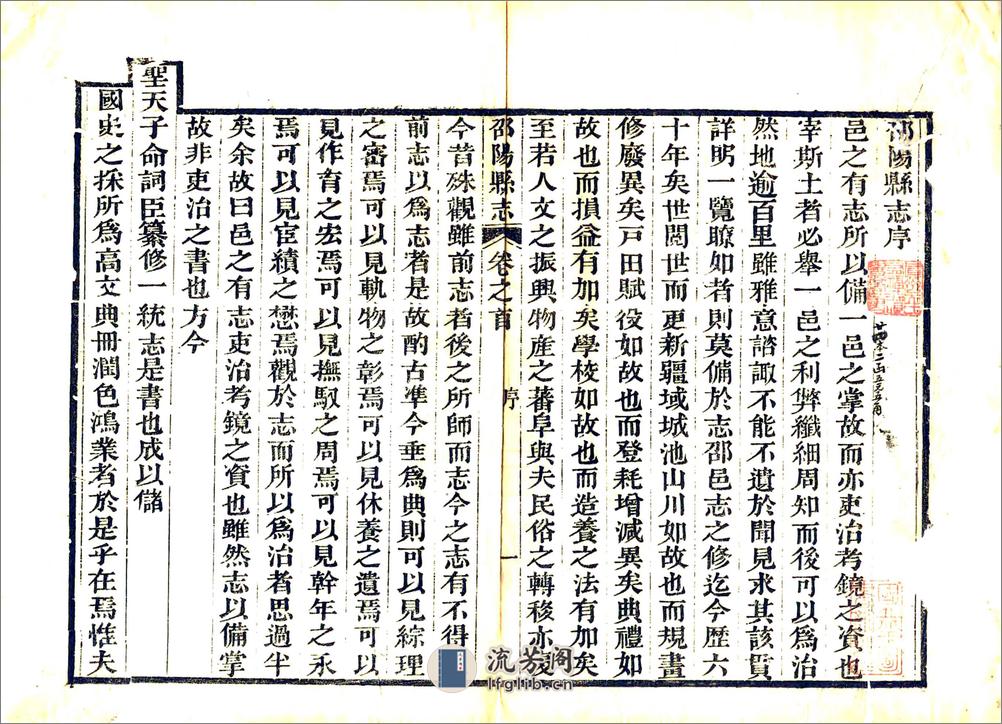 邵陽縣志序
邑之有志所以備一邑之掌故而亦吏治考鏡之資也
宰斯土者必舉一邑之利弊纖細周知而後可以為治
然地逾百里雖雅意諮諏不能不遺於聞見求其該貫
詳明一覽瞭如者則莫備於志邵邑志之修迄今歷六
十年矣世閱世而更新疆域城池山川如故也而規畫
修廢異矣戸田賦役如故也而登耗增減異矣典禮如
故也而損益有加矣學校如故也而造養之法有加矣
至若人文之振興物産之蕃阜與夫民俗之轉移亦
邵陽縣志 卷之首 序 一
今昔殊觀雖前志者後之所師而志今之志有不得
前志以為志者是故酌古準今垂為典則可以見綜理
之審焉可以見軌物之彰焉可以見休養之遺焉可以
見作育之宏焉可以見撫馭之周焉可以見幹年之永
焉可以見宦績之懋焉觀於志而所以為治者思過半
矣余故曰邑之有志吏治考鏡之資也雖然志以備掌
故非吏治之書也方今
聖天子命詞臣纂修一統志是書也成以儲
國史之採所為高文典冊潤色鴻業者於是乎在焉惟夫
流芳阁
lfglib.cn